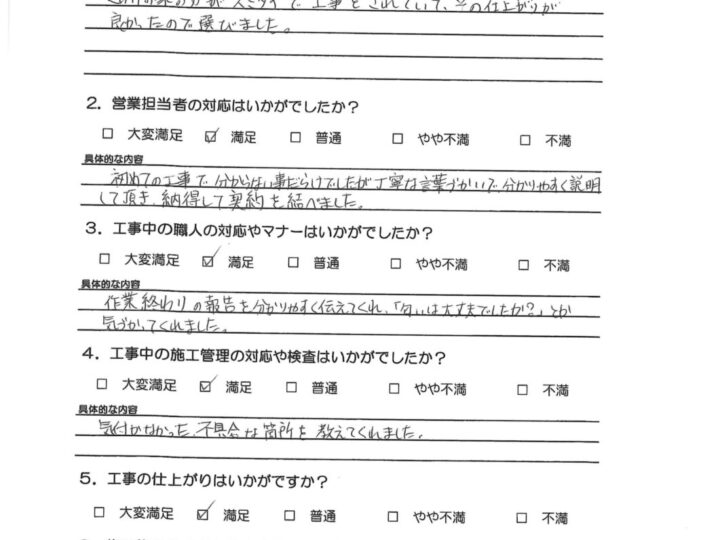 良かったので選びました。
2．営業担当者の対応はいかがでしたか？
□ 大変満足 ☑ 満足 □ 普通 □ やや不満 □ 不満
具体的な内容
初めての工事で分からない事だらけでしたが丁寧な言葉づかいで、分かりやすく説明
して頂き、納得して契約を結べました。
3．工事中の職人の対応やマナーはいかがでしたか？
□ 大変満足 ☑ 満足 □ 普通 □ やや不満 □ 不満
具体的な内容
作業終わりの報告を分かりやすく伝えてくれ、「匂いは大丈夫でしたか？」とか
気づかってくれました。
4．工事中の施工管理の対応や検査はいかがでしたか？
□ 大変満足 ☑ 満足 □ 普通 □ やや不満 □ 不満
具体的な内容
気付かなかった、不具合な箇所を教えてくれました。
5．工事の仕上がりはいかがですか？
□ 大変満足 ☑ 満足 □ 普通 □ やや不満 □ 不満